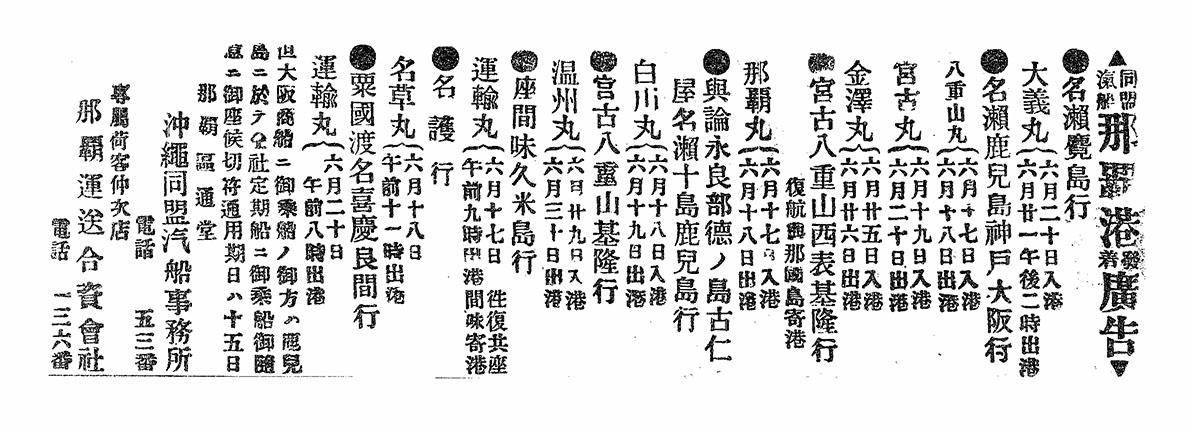 ▲同盟汽船那覇港發着廣告▼
●名瀬鹿島行
大義丸 六月二十日入港
六月廿一午後二時出港
●名瀬鹿兒島神戸大阪行
八重山丸 六月十七日入港
六月十八日出港
宮古丸 六月十九日入港
六月二十日出港
金澤丸 六月廿五日入港
六月廿六日出港
●宮古八重山西表基隆行
復航與那國島寄港
那覇丸 六月十七日入港
六月十八日出港
●與論永良部德ノ島古仁
屋名瀬十島鹿兒島行
白川丸 六月十八日入港
六月十九日出港
●宮古八重山基隆行
温州丸 六月廿九日入港
六月三十日出港
●座間味久米島行
運輸丸 六月十七日 徃復共座
午前九時出港間味寄港
●名護行
名草丸 六月十八日
午前十一時出港
●粟國渡名喜慶良間行
運輸丸 六月二十日
午前八時出港
但大阪商船ニ御乗船ノ御方ハ鹿兒
島ニ於テ仝社定期船ニ御乗船御隨
意ニ御座候切符通用期日ハ十五日
那覇區通堂
沖繩同盟汽船事務所
電話 五三番
專屬荷客仲次店
那覇運送合資會社
電話 一三六番